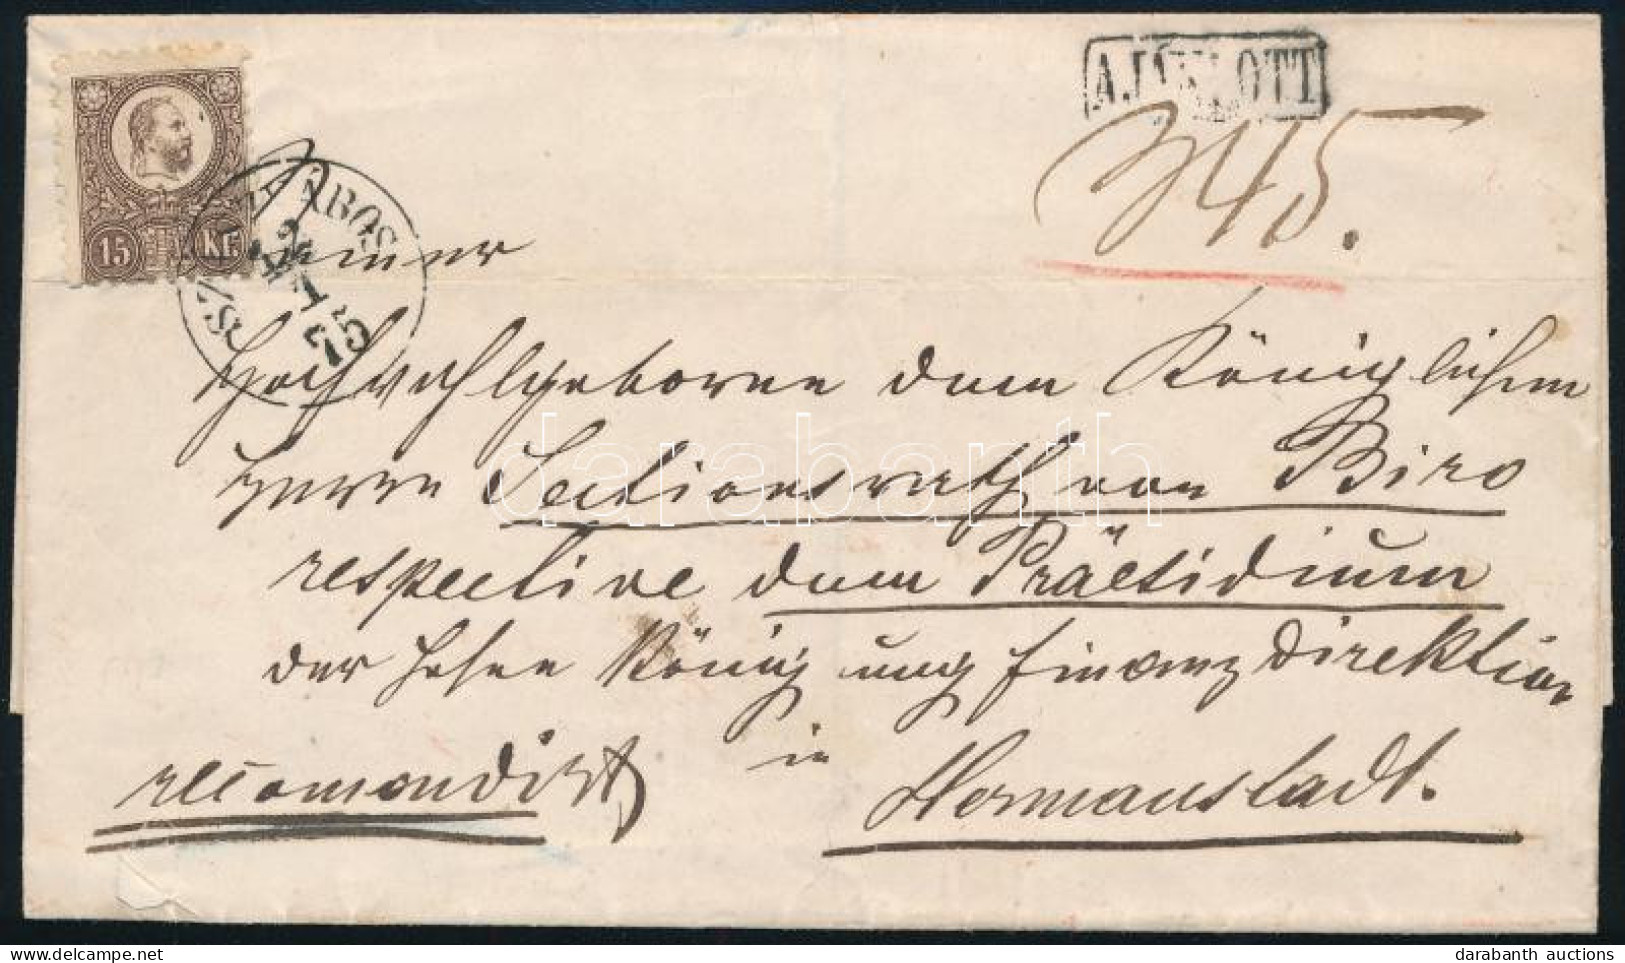 AJÁNLOTT
45.
15 KR.
SZÁSZVÁROS
24
1
75
Seiner
Hochwohlgeboren dem Königlichen
Herrn Sectionsrath von Biro
respective dem Präesidium
der hohen König ung Finanzdirektion
recomandirt in Hermanstadt.
darabanth
darabanth auctions